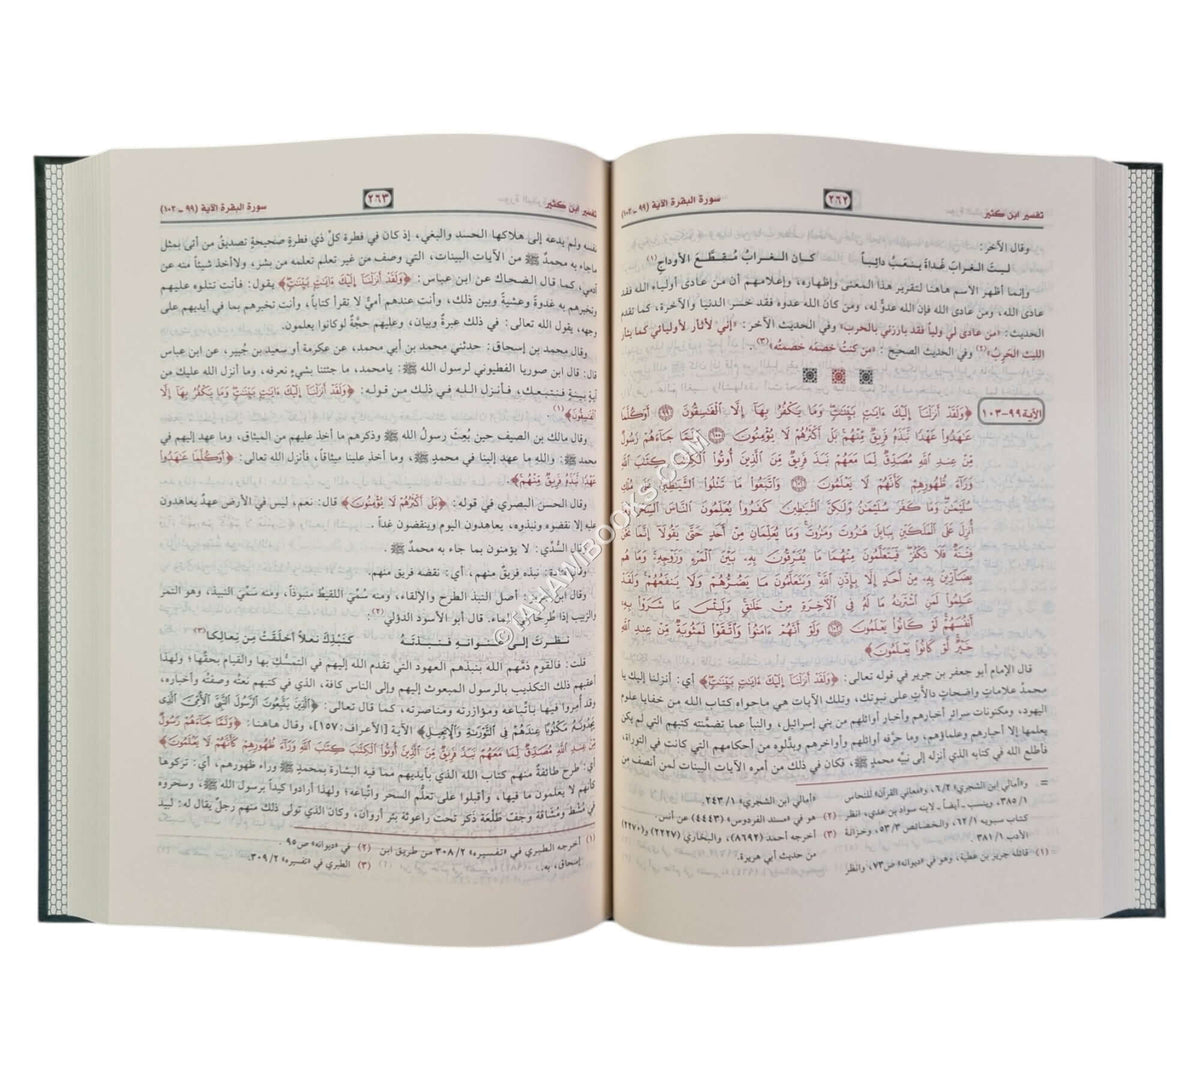 تفسير ابن كثير
٢٦٢
سورة البقرة الآية (٩٩ - ١٠٣)
وقال الآخر:
ليتَ الغرابَ غَداةَ يَنعَبُ دائِباً كان الغرابُ مُقطَّعَ الأوداجِ(١)
وإنما أظهر الاسم هاهنا لتقرير هذا المعنى وإظهاره، وإعلامهم أن من عادَى أولياء الله فقد
عادَى الله، ومن عادى الله فإن الله عدوٌّ له، ومن كان الله عدوه فقد خسر الدنيا والآخرة، كما تقدم
الحديث: «من عادَى لي ولياً فقد بارزني بالحرب» وفي الحديث الآخر: «إني لأثأر لأوليائي كما يثأر
الليث الحَرِبُ»(٢) وفي الحديث الصحيح: «من كنتُ خصمَه خصمتُه»(٣).
الآية ٩٩-١٠٣
﴿وَلَقَدْ أَنزَلْنَآ إِلَيْكَ ءَايَٰتٍۭ بَيِّنَٰتٍۖ وَمَا يَكْفُرُ بِهَآ إِلَّا ٱلْفَٰسِقُونَ ٩٩ أَوَكُلَّمَا
عَٰهَدُوا۟ عَهْدًا نَّبَذَهُۥ فَرِيقٌ مِّنْهُمۚ بَلْ أَكْثَرُهُمْ لَا يُؤْمِنُونَ ١٠٠ وَلَمَّا جَآءَهُمْ رَسُولٌ
مِّنْ عِندِ ٱللَّهِ مُصَدِّقٌ لِّمَا مَعَهُمْ نَبَذَ فَرِيقٌ مِّنَ ٱلَّذِينَ أُوتُوا۟ ٱلْكِتَٰبَ كِتَٰبَ ٱللَّهِ
وَرَآءَ ظُهُورِهِمْ كَأَنَّهُمْ لَا يَعْلَمُونَ ١٠١ وَٱتَّبَعُوا۟ مَا تَتْلُوا۟ ٱلشَّيَٰطِينُ عَلَىٰ مُلْكِ
سُلَيْمَٰنَۖ وَمَا كَفَرَ سُلَيْمَٰنُ وَلَٰكِنَّ ٱلشَّيَٰطِينَ كَفَرُوا۟ يُعَلِّمُونَ ٱلنَّاسَ ٱلسِّحْرَ وَمَآ
أُنزِلَ عَلَى ٱلْمَلَكَيْنِ بِبَابِلَ هَٰرُوتَ وَمَٰرُوتَۚ وَمَا يُعَلِّمَانِ مِنْ أَحَدٍ حَتَّىٰ يَقُولَآ إِنَّمَا نَحْنُ
فِتْنَةٌ فَلَا تَكْفُرْۖ فَيَتَعَلَّمُونَ مِنْهُمَا مَا يُفَرِّقُونَ بِهِۦ بَيْنَ ٱلْمَرْءِ وَزَوْجِهِۦۚ وَمَا هُم
بِضَآرِّينَ بِهِۦ مِنْ أَحَدٍ إِلَّا بِإِذْنِ ٱللَّهِۚ وَيَتَعَلَّمُونَ مَا يَضُرُّهُمْ وَلَا يَنفَعُهُمْۚ وَلَقَدْ
عَلِمُوا۟ لَمَنِ ٱشْتَرَىٰهُ مَا لَهُۥ فِى ٱلْءَاخِرَةِ مِنْ خَلَٰقٍۚ وَلَبِئْسَ مَا شَرَوْا۟ بِهِۦٓ
أَنفُسَهُمْۚ لَوْ كَانُوا۟ يَعْلَمُونَ ١٠٢ وَلَوْ أَنَّهُمْ ءَامَنُوا۟ وَٱتَّقَوْا۟ لَمَثُوبَةٌ مِّنْ عِندِ ٱللَّهِ
خَيْرٌۖ لَّوْ كَانُوا۟ يَعْلَمُونَ﴾
قال الإمام أبو جعفر بن جرير في قوله تعالى: ﴿وَلَقَدْ أَنزَلْنَآ إِلَيْكَ ءَايَٰتٍۭ بَيِّنَٰتٍ﴾ أي: أنزلنا إليك يا
محمدُ علاماتٍ واضحاتٍ دالَّاتٍ على نبوتك، وتلك الآيات هي ماحواه كتاب الله من خفايا علوم
اليهود، ومكنونات سرائر أخبارهم وأخبار أوائلهم من بني إسرائيل، والنبأ عما تضمَّنته كتبهم التي لم يكن
يعلمها إلا أحبارهم وعلماؤهم، وما حرَّفه أوائلهم وأواخرهم وبدَّلوه من أحكامهم التي كانت في التوراة،
فأطلع الله في كتابه الذي أنزله إلى نبيِّه محمدٍ ﷺ، فكان في ذلك من أمره الآيات البينات لمن أنصف من
= و«أمالي ابن الشجري» ٦/٢، و«معاني القرآن» للنحاس
١/ ٣٨٥. وينسب - أيضاً - لابنه سواد بن عدي، انظر
كتاب سيبويه ٦٢/١، والخصائص ٥٣/٣، وخزانة
الأدب ٣٨١/١.
(١) قائله جرير بن عطية، وهو في «ديوانه» ص٧٣، وانظر
«أمالي ابن الشجري» ٢٤٣/١.
(٢) هو في «مسند الفردوس» (٤٤٤٣) عن أنس.
(٣) أخرجه أحمد (٨٦٩٢)، والبخاري (٢٢٢٧) و(٢٢٧٠)
من حديث أبي هريرة.
تفسير ابن كثير
٢٦٣
سورة البقرة الآية (٩٩ - ١٠٣)
نفسه ولم يدعه إلى هلاكها الحسد والبغي، إذ كان في فطرة كلِّ ذي فطرةٍ صحيحةٍ تصديق من أتى بمثل
ماجاء به محمدٌ ﷺ من الآيات البينات، التي وصف من غير تعلم تعلمه من بشرٍ، ولاأخذ شيئاً منه عن
آدمي، كما قال الضحاك عن ابن عباس: ﴿وَلَقَدْ أَنزَلْنَآ إِلَيْكَ ءَايَٰتٍۭ بَيِّنَٰتٍ﴾ يقول: فأنت تتلوه عليهم
وتخبرهم به غدوةً وعشيةً وبين ذلك، وأنت عندهم أميٌّ لا تقرأ كتاباً، وأنت تخبرهم بما في أيديهم على
وجهه، يقول الله تعالى: في ذلك عبرةٌ وبيان، وعليهم حجَّةٌ لوكانوا يعلمون.
وقال محمد بن إسحاق: حدثني محمد بن أبي محمد، عن عكرمة أو سعيد بن جُبير، عن ابن عباس
قال: قال ابن صوريا الفطيوني لرسول الله ﷺ: يامحمد، ما جئتنا بشيءٍ نعرفه، وما أنزل الله عليك من
آيةٍ بينةٍ فنتبعك، فـأنـزل الـلـه فـي ذلـك مـن قـولـه: ﴿وَلَقَدْ أَنزَلْنَآ إِلَيْكَ ءَايَٰتٍۭ بَيِّنَٰتٍۖ وَمَا يَكْفُرُ بِهَآ إِلَّا
ٱلْفَٰسِقُونَ﴾(١).
وقال مالك بن الصيف حين بُعِثَ رسول الله ﷺ وذكرهم ما أخذ عليهم من الميثاق، وما عهد إليهم في
محمد ﷺ: والله ما عهد إلينا في محمدٍ ﷺ، وما أخذ علينا ميثاقاً، فأنزل الله تعالى: ﴿أَوَكُلَّمَا عَٰهَدُوا۟
عَهْدًا نَّبَذَهُۥ فَرِيقٌ مِّنْهُم﴾.
وقال الحسن البصري في قوله: ﴿بَلْ أَكْثَرُهُمْ لَا يُؤْمِنُونَ﴾ قال: نعم، ليس في الأرض عهدٌ يعاهدون
عليه إلا نقضوه ونبذوه، يعاهدون اليوم وينقضون غداً.
وقال السُّدِّي: لا يؤمنون بما جاء به محمدٌ ﷺ.
وقال قتادة: نبذه فريقٌ منهم، أي: نقضه فريق منهم.
وقال ابن جرير: أصل النبذ الطرح والإلقاء، ومنه سُمِّيَ اللقيطُ منبوذاً، ومنه سُمِّيَ النبيذُ، وهو التمر
والزبيب إذا طُرِحا في الماء. قال أبو الأسود الدؤلي(٢):
نـظـرتَ إلـى عـنـوانـه فـنـبـذتَـهُ كَنَبْذِكَ نَعلاً أخلَقَتْ مِن نِعالِكا(٣)
قلت: فالقوم ذمَّهم الله بنبذهم العهود التي تقدم الله إليهم في التمسُّك بها والقيام بحقِّها؛ ولهذا
أعقبهم ذلك التكذيب بالرسول المبعوث إليهم وإلى الناس كافة، الذي في كتبهم نعتُه وصفتُه وأخباره،
وقد أُمِروا فيها باتِّباعه ومؤازرته ومناصرته، كما قال تعالى: ﴿ٱلَّذِينَ يَتَّبِعُونَ ٱلرَّسُولَ ٱلنَّبِىَّ ٱلْأُمِّىَّ ٱلَّذِى
يَجِدُونَهُۥ مَكْتُوبًا عِندَهُمْ فِى ٱلتَّوْرَىٰةِ وَٱلْإِنجِيلِ﴾ الآية [الأعراف: ١٥٧]، وقال هاهنا: ﴿وَلَمَّا جَآءَهُمْ رَسُولٌ
مِّنْ عِندِ ٱللَّهِ مُصَدِّقٌ لِّمَا مَعَهُمْ نَبَذَ فَرِيقٌ مِّنَ ٱلَّذِينَ أُوتُوا۟ ٱلْكِتَٰبَ كِتَٰبَ ٱللَّهِ وَرَآءَ ظُهُورِهِمْ كَأَنَّهُمْ لَا يَعْلَمُونَ﴾
أي: طرح طائفةٌ منهم كتاب الله الذي بأيديهم مما فيه البشارة بمحمدٍ ﷺ وراء ظهورهم، أي: تركوها
كأنهم لا يعلمون ما فيها، وأقبلوا على تعلُّم السحر واتِّباعه؛ ولهذا أرادوا كيداً برسول الله ﷺ، وسحروه
في مُشْطٍ ومُشَاقَةٍ وجُفِّ طَلْعَةٍ ذَكَرٍ تحت راعوثة بئر أروان، وكان الذي تولى ذلك منهم رجلٌ يقال له: لبيد
(١) أخرجه الطبري في «تفسيره» ٣٠٨/٢ من طريق ابن
إسحاق، به.
(٢) في «ديوانه» ص٩٥.
(٣) الطبري في «تفسيره» ٣٠٩/٢.
© TAHAWIBOOKS.COM